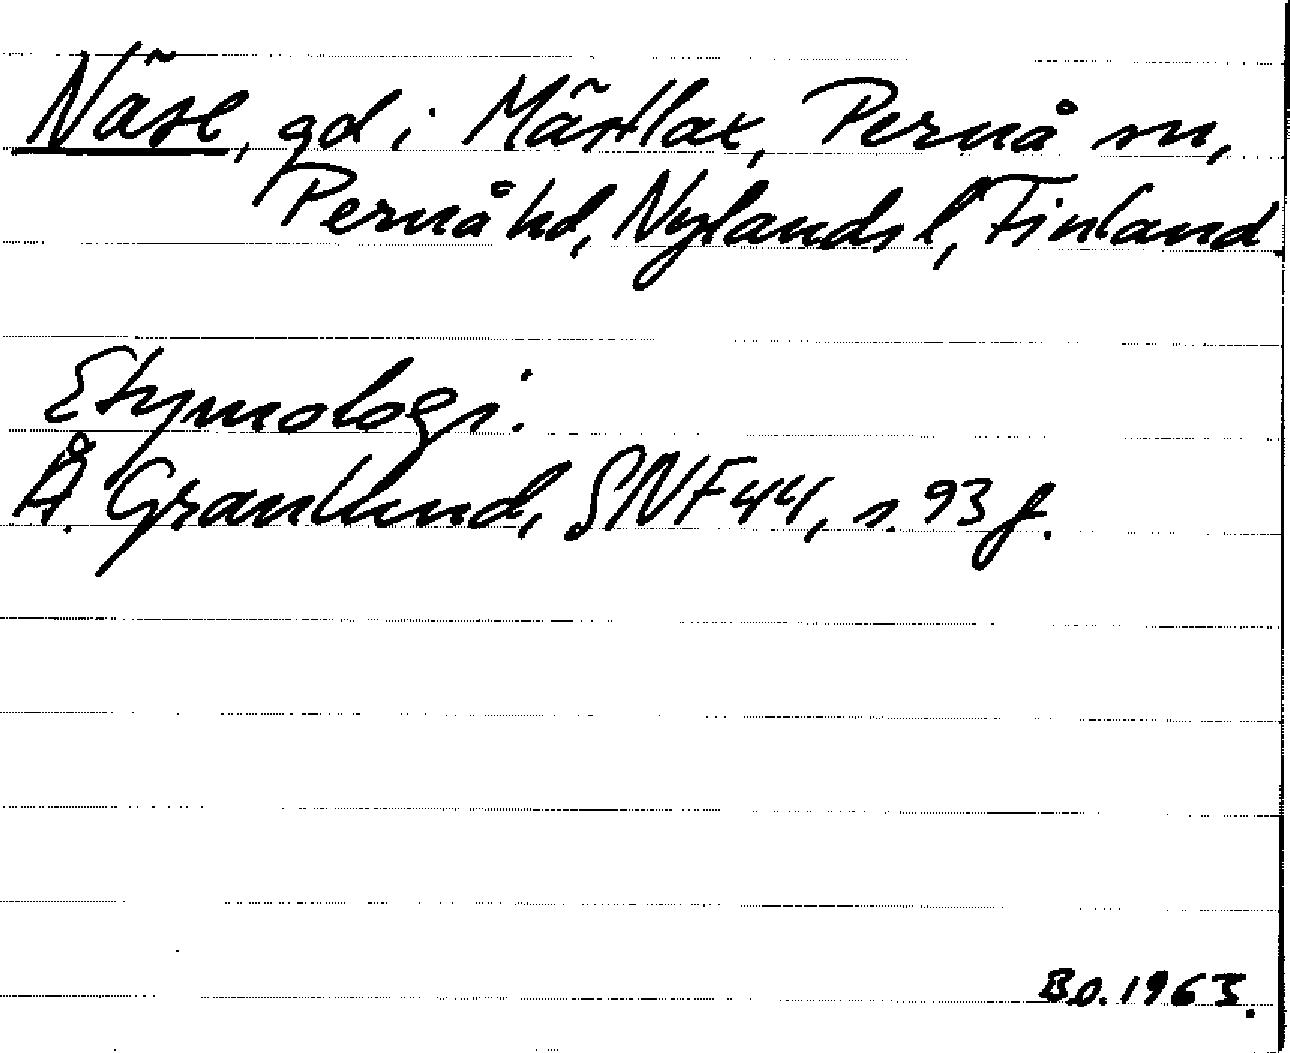 Näse, gd i Märtlax, Pernå sn,
Pernå hd, Nylands l, Finland.
Etymologi.
Å. Granlund, SNF 44, s. 93 f.
B.O. 1963.